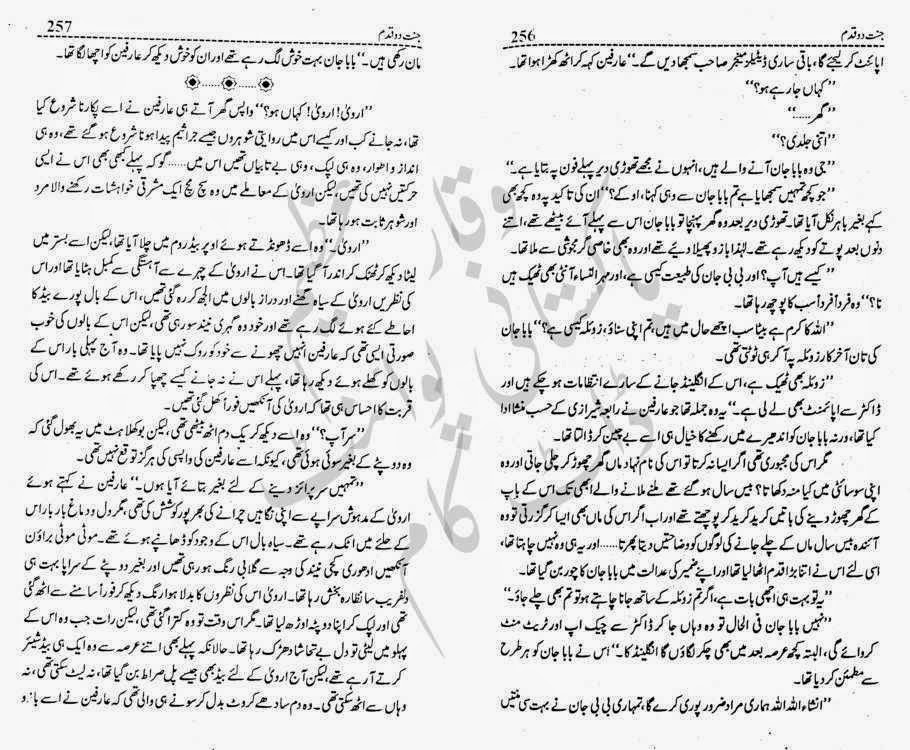 جنت دو قدم
256
اپائنٹ کر لیجئے گا، باقی ساری ڈیٹیلز منیجر صاحب سمجھا دیں گے۔‘‘ عارفین کہہ کر اٹھ کھڑا ہوا تھا۔
’’کہاں جا رہے ہو؟‘‘
’’گھر......‘‘
’’اتنی جلدی؟‘‘
’’جی وہ بابا جان آنے والے ہیں، انہوں نے مجھے تھوڑی دیر پہلے فون پہ بتایا ہے۔‘‘
’’جو کچھ تمہیں سمجھایا ہے تم بابا جان سے وہی کہنا، اوکے؟‘‘ ان کی تاکید پہ وہ کچھ بھی
کہے بغیر باہر نکل آیا تھا۔ تھوڑی دیر بعد وہ گھر پہنچا تو بابا جان اس سے پہلے آئے بیٹھے تھے، اتنے
دنوں بعد پوتے کو دیکھ رہے تھے۔ لہٰذا بازو پھیلا دیئے تھے اور وہ بھی خاصی گرمجوشی سے ملا تھا۔
’’کیسے ہیں آپ؟ اور بی بی جان کی طبیعت کیسی ہے، اور مہر النساء آنٹی بھی ٹھیک ہیں
نا؟‘‘ وہ فرداً فرداً سب کا پوچھ رہا تھا۔
’’اللہ کا کرم ہے بیٹا سب اچھے حال میں ہیں، تم اپنی سناؤ، زوئلہ کیسی ہے؟‘‘ بابا جان
کی تان آخر کار زوئلہ پہ آ کر ہی ٹوٹتی تھی۔
’’زوئلہ بھی ٹھیک ہے، اس کے انگلینڈ جانے کے سارے انتظامات ہو چکے ہیں اور
ڈاکٹر سے اپائنمنٹ بھی لے لی ہے۔‘‘ یہ وہ جملہ تھا جو عارفین نے رابعہ شیرازی کے حسب منشا ادا
کیا تھا، ورنہ بابا جان کو اندھیرے میں رکھنے کا خیال ہی اسے بے چین کر ڈالتا تھا۔
مگر اس کی مجبوری تھی اگر ایسا نہ کرتا تو اس کی نام نہاد ماں گھر چھوڑ کر چلی جاتی اور وہ
اپنی سوسائٹی میں کیا منہ دکھاتا؟ بیس سال ہو گئے تھے ملنے ملانے والے ابھی تک اس کے باپ
کے گھر چھوڑ دینے کی باتیں کرید کرید کر پوچھتے تھے اور اب اگر اس کی ماں بھی ایسا کر گزرتی تو وہ
آئندہ بیس سال ماں کے چلے جانے کی لوگوں کو وضاحتیں دیتا پھرتا......اور یہی وہ نہیں چاہتا تھا،
اسی لئے اس نے اتنا بڑا قدم اٹھا لیا تھا اور اپنے ضمیر کی عدالت میں بابا جان کا چور بن گیا تھا۔
’’یہ تو بہت ہی اچھی بات ہے، اگر تم زوئلہ کے ساتھ جانا چاہتے ہو تو تم بھی چلے جاؤ۔‘‘
’’نہیں بابا جان فی الحال تو وہ وہاں جا کر ڈاکٹر سے چیک اپ اور ٹریٹ منٹ
کروائے گی، البتہ کچھ عرصہ بعد میں بھی چکر لگاؤں گا انگلینڈ کا۔‘‘ اس نے بابا جان کو ہر طرح
سے مطمئن کر دیا تھا۔
’’انشاء اللہ اللہ ہماری مراد ضرور پوری کرے گا، تمہاری بی بی جان نے بہت سی منتیں
جنت دو قدم
257
مان رکھی ہیں۔‘‘ بابا جان بہت خوش لگ رہے تھے اور ان کو خوش دیکھ کر عارفین کو اچھا لگا تھا۔
’’ارویٰ! ارویٰ! کہاں ہو؟‘‘ واپس گھر آتے ہی عارفین نے اسے پکارنا شروع کیا
تھا، نہ جانے کب اور کیسے اس میں روایتی شوہروں جیسے جراثیم پیدا ہونا شروع ہو گئے تھے، وہ ہی
انداز و اطوار، وہ ہی لپک، وہی بے تابیاں تھیں اس میں......گو کہ پہلے کبھی بھی اس نے ایسی
حرکتیں نہیں کی تھیں، لیکن ارویٰ کے معاملے میں وہ سچ مچ ایک مشرقی خواہشات رکھنے والا مرد
اور شوہر ثابت ہو رہا تھا۔
’’ارویٰ۔‘‘ وہ اسے ڈھونڈتے ہوئے اوپر بیڈ روم میں چلا آیا تھا، لیکن اسے بستر میں
لیٹا دیکھ کر ٹھٹک کر اندر آ گیا تھا۔ اس نے ارویٰ کے چہرے سے آہستگی سے کمبل ہٹایا تھا اور اس
کی نظریں ارویٰ کے سیاہ گھنے اور دراز بالوں میں الجھ کر رہ گئی تھیں، اس کے بال پورے بیڈ کا
احاطہ کئے ہوئے لگ رہے تھے اور خود وہ گہری نیند سو رہی تھی، لیکن اس کے بالوں کی خوب
صورتی ایسی تھی کہ عارفین انہیں چھونے سے خود کو روک نہیں پایا تھا۔ وہ آج پہلی بار اس کے
بالوں کو کھلے ہوئے دیکھ رہا تھا، پہلے اس نے نہ جانے کیسے چھپا کر رکھے ہوئے تھے۔ اس کی
قربت کا احساس ہی تھا کہ ارویٰ کی آنکھیں فوراً کھل گئی تھیں۔
’’سر آپ؟‘‘ وہ اسے دیکھ کر یک دم اٹھ بیٹھی تھی، لیکن بوکھلاہٹ میں یہ بھول گئی کہ
وہ دوپٹے کے بغیر سوئی ہوئی تھی، کیونکہ اسے عارفین کی واپسی کی ہرگز توقع نہیں تھی۔
’’تمہیں سرپرائز دینے کے لئے بغیر بتائے آیا ہوں۔‘‘ عارفین نے کہتے ہوئے
ارویٰ کے مدہوش سراپے سے اپنی نگاہیں چرانے کی بھرپور کوشش کی تھی، مگر دل و دماغ بار بار اس
کے حلئے میں اٹک رہے تھے۔ سیاہ بال اس کے وجود کو ڈھانپے ہوئے تھے۔ موٹی موٹی براؤن
آنکھیں ادھوری کچی نیند کی وجہ سے گلابی رنگ ہو رہی تھیں اور بغیر دوپٹے کے سراپا بہت ہی
دلفریب سا نظارہ بخش رہا تھا۔ ارویٰ اس کی نظروں کا بدلا ہوا رنگ دیکھ کر فوراً سامنے سے اٹھ گئی
تھی اور لپک کر اپنا دوپٹہ اوڑھ لیا تھا۔ مگر اس وقت تو وہ کترا گئی تھی، لیکن رات جب وہ اس کے
پہلو میں لیٹی تو دل بے تحاشا دھڑک رہا تھا۔ حالانکہ پہلے بھی اتنے عرصہ سے وہ ایک ہی بیڈ شیئر
کرتے آ رہے تھے، لیکن آج ارویٰ کے لئے بیڈ بھی جیسے پل صراط بن گیا تھا، نہ لیٹ سکتی تھی، نہ
وہاں سے اٹھ سکتی تھی۔ وہ دم سادھے کروٹ بدل کر سونے ہی والی تھی کہ عارفین نے اسے